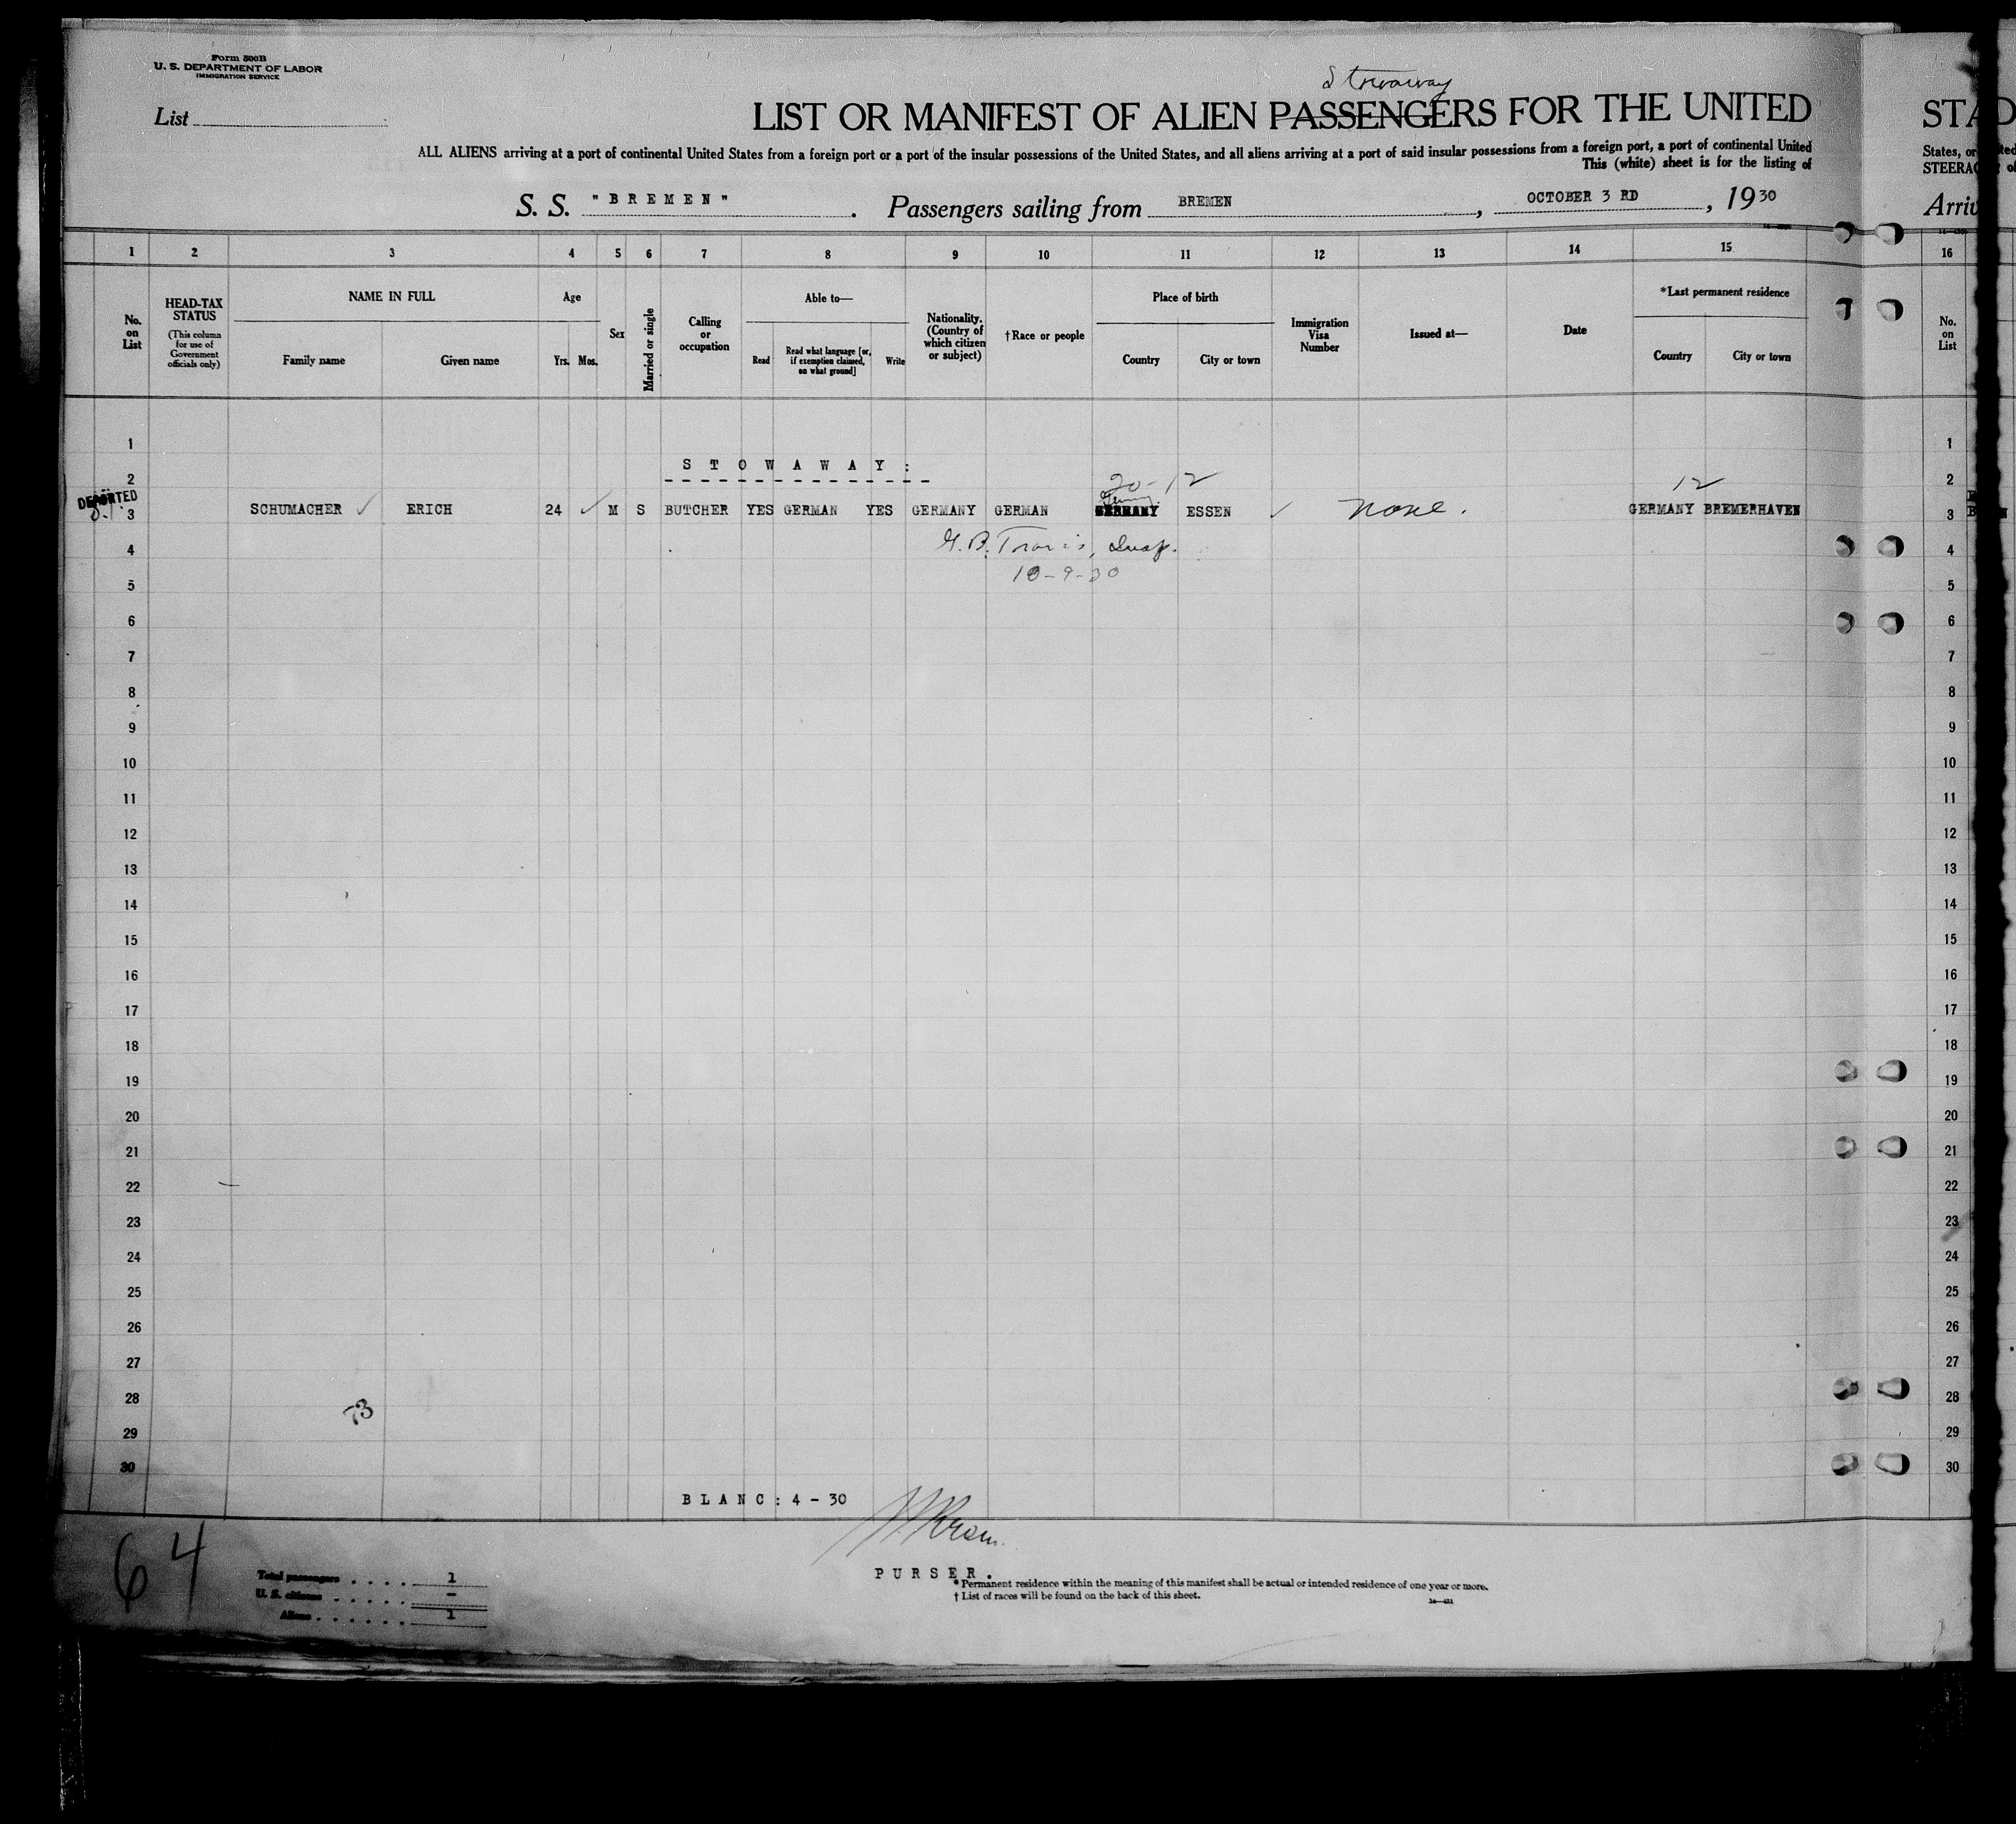 Form 500B
U. S. DEPARTMENT OF LABOR
IMMIGRATION SERVICE
List
Stowaway
LIST OR MANIFEST OF ALIEN PASSENGERS FOR THE UNITED
ALL ALIENS arriving at a port of continental United States from a foreign port or a port of the insular possessions of the United States, and all aliens arriving at a port of said insular possessions from a foreign port, a port of continental United
This (white) sheet is for the listing of
S. S. "BREMEN". Passengers sailing from BREMEN, OCTOBER 3 RD, 1930
STA
States, or
STEERAG
Arriv
1 2 3 4 5 6 7 8 9 10 11 12 13 14 15 16
No. on List
HEAD-TAX STATUS
(This column for use of Government officials only)
NAME IN FULL
Family name Given name
Age
Yrs. Mos.
Sex
Married or single
Calling or occupation
Able to—
Read
Read what language [or, if exemption claimed, on what ground]
Write
Nationality. (Country of which citizen or subject)
†Race or people
Place of birth
Country City or town
Immigration Visa Number
Issued at—
Date
*Last permanent residence
Country City or town
No. on List
1 1
STOWAWAY:
2 20-12 12 2
DEPORTED
3 SCHUMACHER ERICH 24 M S BUTCHER YES GERMAN YES GERMANY GERMAN GERMANY ESSEN None. GERMANY BREMERHAVEN 3
4 G.B. Travis, Insp. 4
5 10-9-30 5
6 6
7 7
8 8
9 9
10 10
11 11
12 12
13 13
14 14
15 15
16 16
17 17
18 18
19 19
20 20
21 21
22 22
23 23
24 24
25 25
26 26
27 27
28 73 28
29 29
30 30
BLANC: 4-30
64
PURSER.
Total passengers . . . . 1
U. S. citizens . . . . . –
Aliens . . . . . . 1
* Permanent residence within the meaning of this manifest shall be actual or intended residence of one year or more.
† List of races will be found on the back of this sheet.